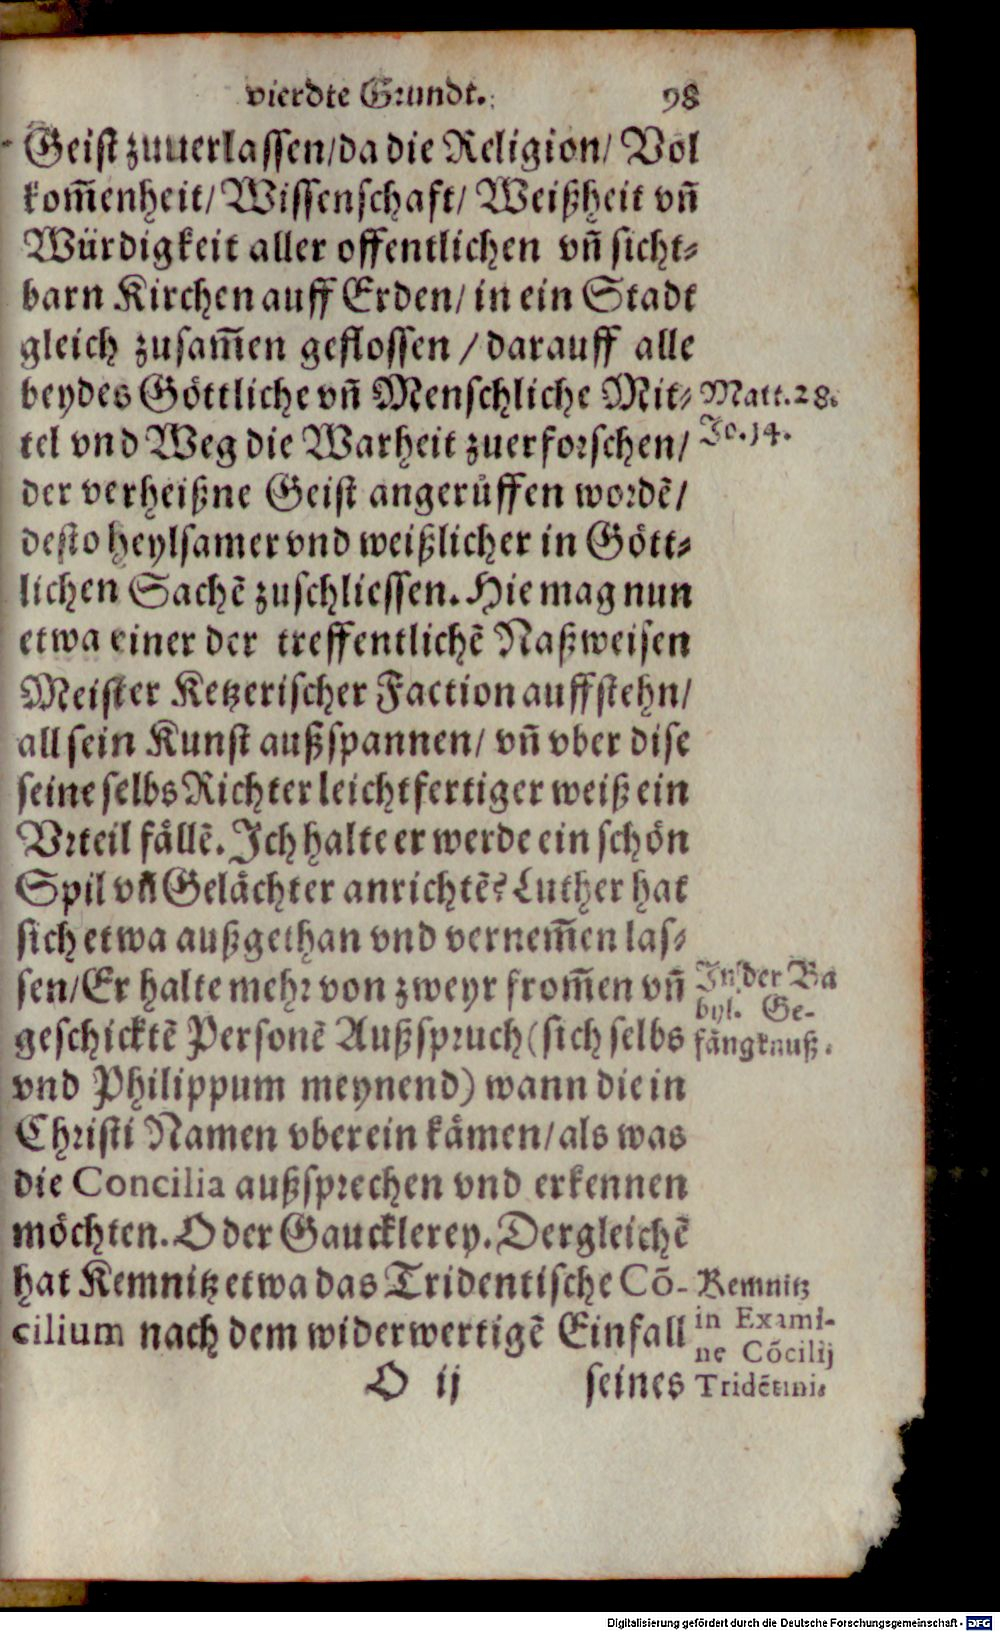 vierdte Grundt. 98
Geist zuuerlassen/da die Religion/ Vol
kom̃enheit/ Wissenschaft/ Weißheit vñ
Würdigkeit aller offentlichen vñ sicht⸗
barn Kirchen auff Erden/ in ein Stadt
gleich zusam̃en geflossen / darauff alle
beydes Göttliche vñ Menschliche Mit⸗
Matt. 28.
tel vnd Weg die Warheit zuerforschen/
Jo. 14.
der verheißne Geist angerůffen wordẽ/
desto heylsamer vnd weißlicher in Gött⸗
lichen Sachẽ zuschliessen. Hie mag nun
etwa einer der treffentlichẽ Naßweisen
Meister Ketzerischer Faction auffstehn/
all sein Kunst außspannen/ vñ vber dise
seine selbs Richter leichtfertiger weiß ein
Vrteil fällẽ. Ich halte er werde ein schön
Spil vñ Gelächter anrichtẽ? Luther hat
sich etwa außgethan vnd vernem̃en las⸗
sen/Er halte mehr von zweyr from̃en vñ
In der Ba
byl. Ge-
geschicktẽ Personẽ Außspruch (sich selbs
fängknuß.
vnd Philippum meynend) wann die in
Christi Namen vberein kämen/als was
die Concilia außsprechen vnd erkennen
möchten. O der Gaucklerey. Dergleichẽ
hat Kemnitz etwa das Tridentische Cõ-
Kemnitz
in Exami-
cilium nach dem widerwertigẽ Einfall
ne Cõcilij
O ij seines
Tridẽtini.
Digitalisierung gefördert durch die Deutsche Forschungsgemeinschaft - DFG